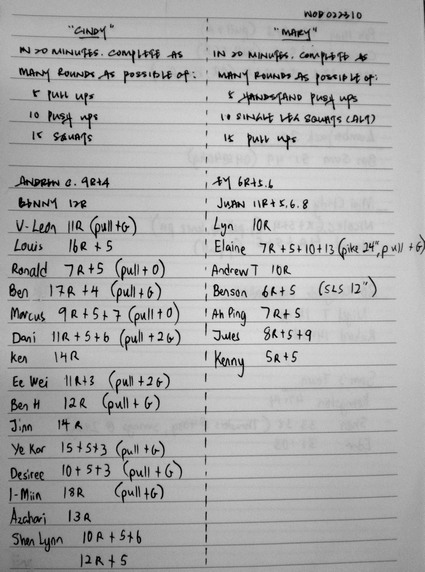 WOD 022310
"CINDY"
IN 20 MINUTES. COMPLETE AS
MANY ROUNDS AS POSSIBLE OF:
5 PULL UPS
10 PUSH UPS
15 SQUATS
ANDREW C. 9R+4
BENNY 12R
V-Leon 11R (pull+G)
Louis 16R + 5
Ronald 7R+5 (pull+O)
Ben 17R +4 (pull+G)
Marcus 9R+5+7 (pull+O)
Dani 11R+5+6 (pull+2G)
Ken 14R
Ee Wei 11R+3 (pull+2G)
Ben H 12R (pull+G)
Jinn 14R
Ye Kar 15+5+3 (pull+G)
Desiree 10+5+3 (pull+G)
I-Miin 18R (pull+G)
Azahari 13R
Shen Lynn 10R+5+6
12R+5
"MARY"
IN 20 MINUTES. COMPLETE AS
MANY ROUNDS AS POSSIBLE OF:
5 HANDSTAND PUSH UPS
10 SINGLE LEG SQUATS (ALT)
15 PULL UPS
6R+5.6
JUAN 11R+5.6.8
Lyn 10R
Elaine 7R+5+10+13 (pike 24", pull+G)
Andrew T 10R
Benson 6R+5 (SLS 12")
Ah Ping 7R+5
Jules 8R+5+9
Kenny 5R+5